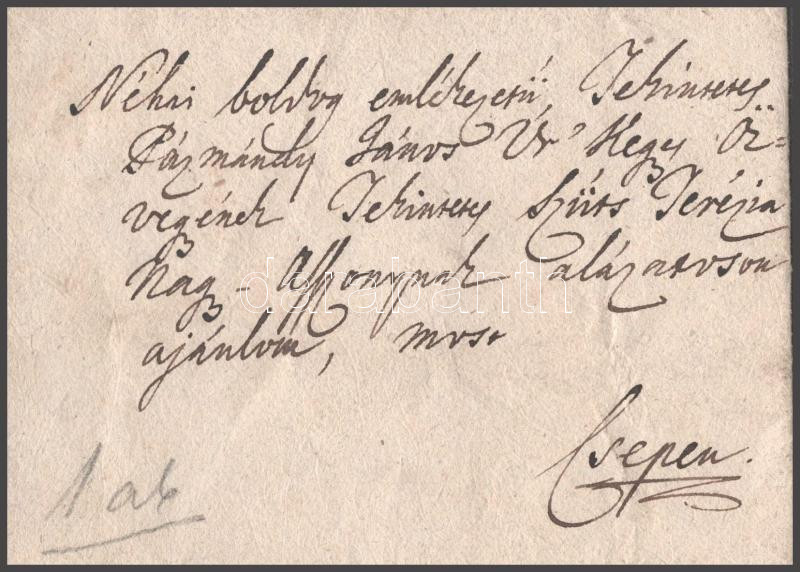 Néhai boldog emlékezetű, Tekintetes
Pázmándy János Úr' Kegy Öz=
vegyének Tekintetes Szüts Terézia
Nagy-Asszonynak alázatoson
ajánlom, most
Csepen.
1 ab
darabanth